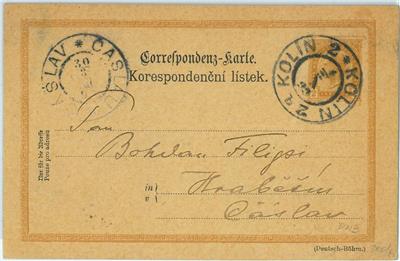 ČASLAV * ČASLAV
30
KOLIN 2 * KOLIN 2 *
Correspondenz-Karte.
Korespondenční lístek.
Nur für die Adresse
Pouze pro adresu
Pan
Bohdan Filipi
in
v
Hraběšín
Čáslav
(Deutsch-Böhm.)